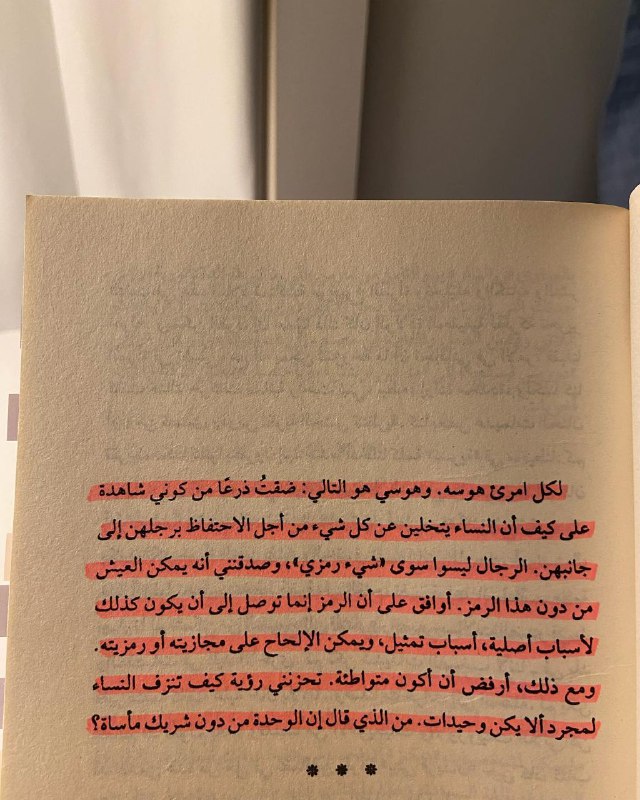 لكل امرئ هوسه. وهوسي هو التالي: ضقتُ ذرعًا من كوني شاهدة
على كيف أن النساء يتخلين عن كل شيء من أجل الاحتفاظ برجلهن إلى
جانبهن. الرجال ليسوا سوى «شيء رمزي»، وصدقنني أنه يمكن العيش
من دون هذا الرمز. أوافق على أن الرمز إنما توصل إلى أن يكون كذلك
لأسباب أصلية، أسباب تمثيل، ويمكن الإلحاح على مجازيته أو رمزيته.
ومع ذلك، أرفض أن أكون متواطئة. تحزنني رؤية كيف تنزف النساء
لمجرد ألا يكن وحيدات. من الذي قال إن الوحدة من دون شريك مأساة؟
* * *